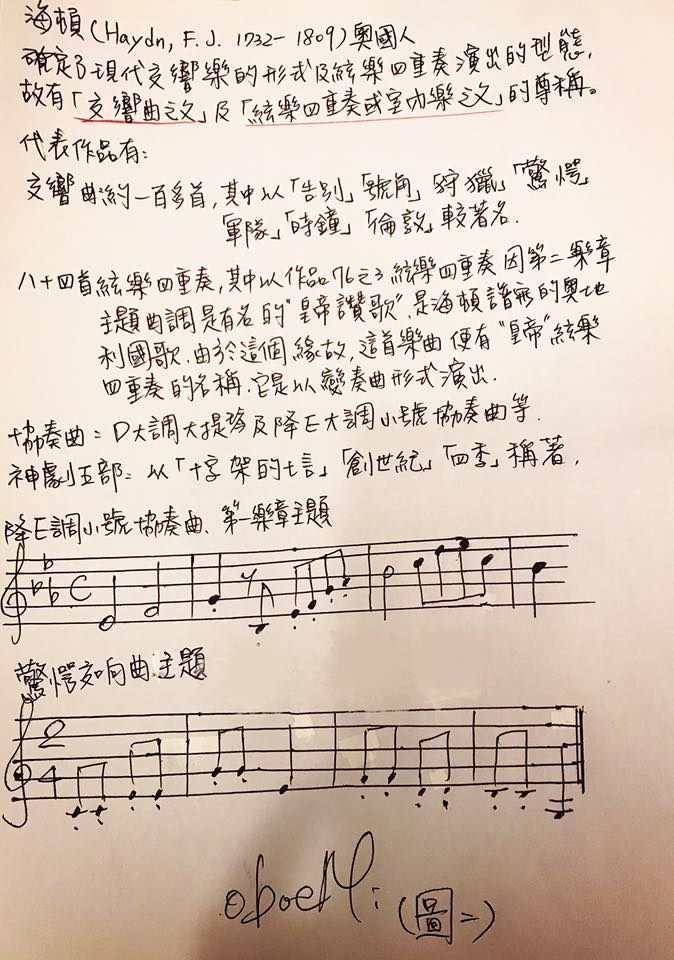 海頓(Haydn, F. J. 1732-1809)奧國人
確定了現代交響樂的形式及絃樂四重奏演出的型態,
故有「交響曲之父」及「絃樂四重奏或室內樂之父」的尊稱。
代表作品有:
交響曲約一百多首,其中以「告別」「號角」「狩獵」「驚愕」
軍隊」「時鐘」「倫敦」較著名.
八十四首絃樂四重奏,其中以作品76之3絃樂四重奏因第二樂章
主題曲調是有名的"皇帝讚歌".是海頓譜寫的奧地
利國歌.由於這個緣故,這首樂曲便有"皇帝"絃樂
四重奏的名稱.它是以變奏曲形式演出.
協奏曲:D大調大提琴及降E大調小號協奏曲等.
神劇五部:以「十字架的七言」「創世紀」「四季」稱著,
降E調小號協奏曲、第一樂章主題
C
驚愕交响曲主題
2
4
oboeMi
(圖二)